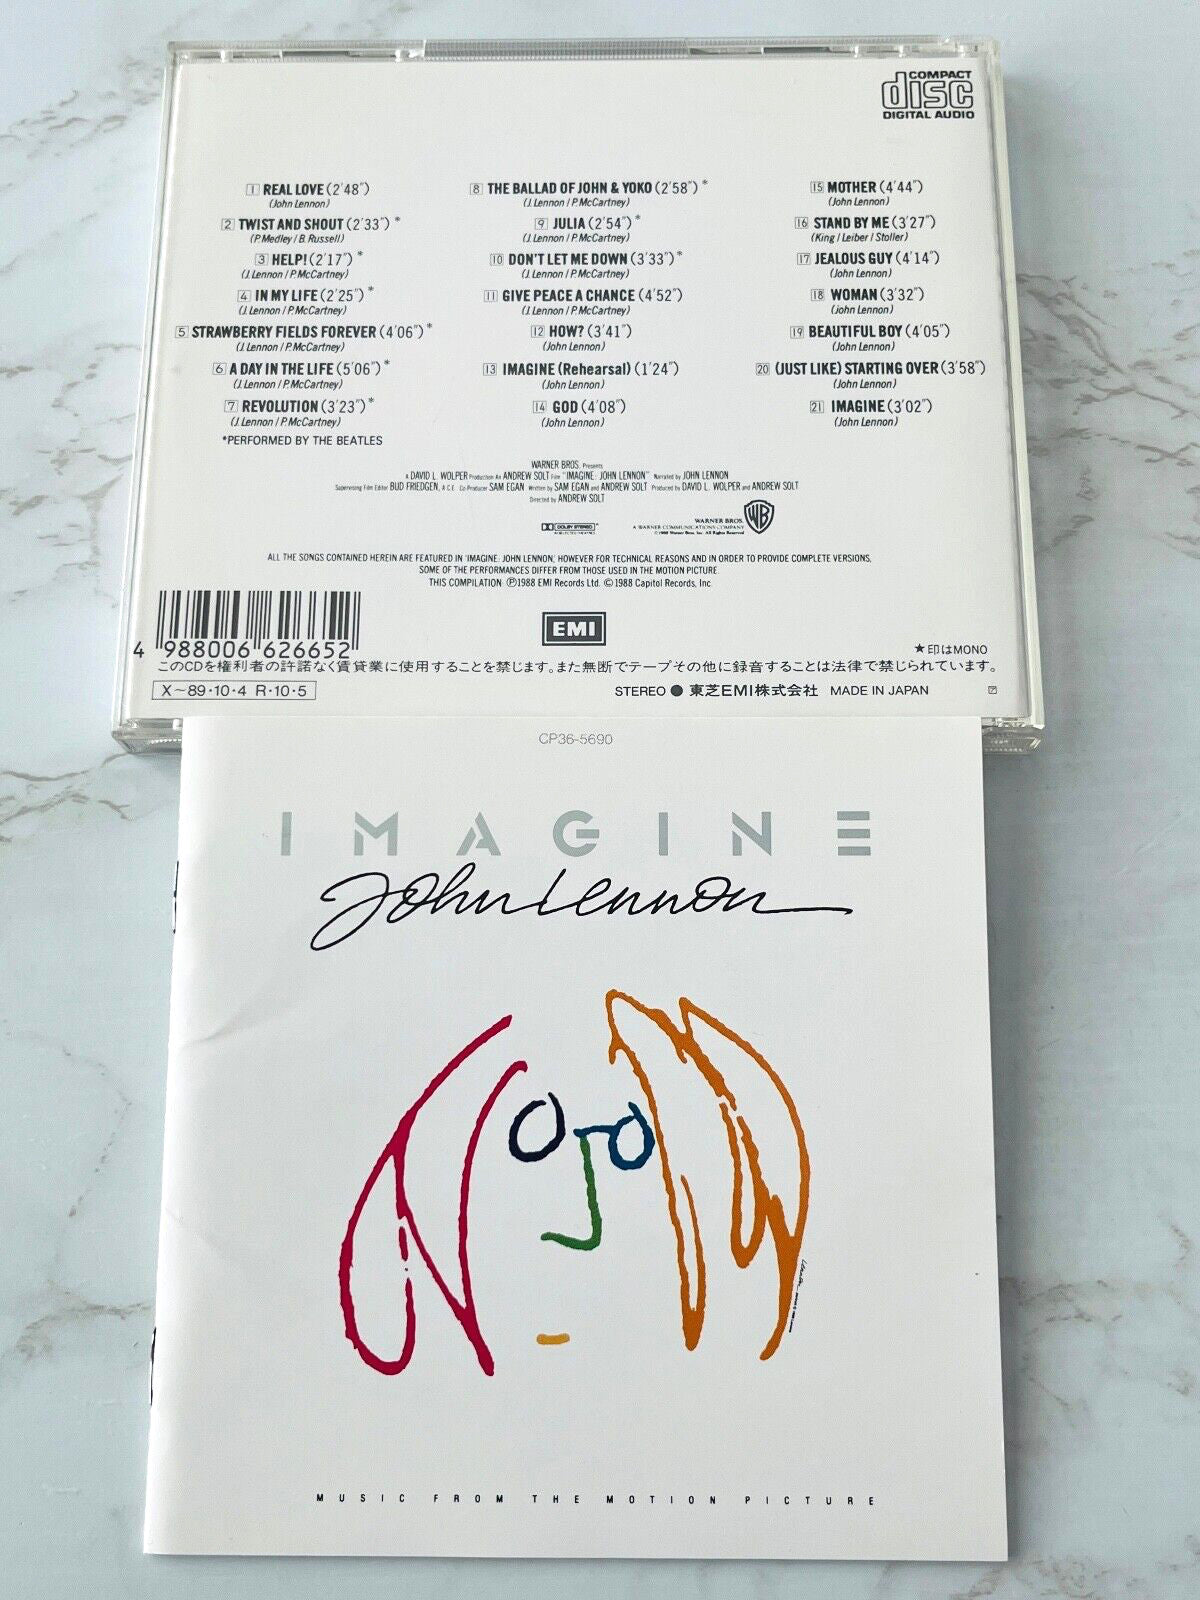 COMPACT
disc
DIGITAL AUDIO
1 REAL LOVE (2'48")
(John Lennon)
2 TWIST AND SHOUT (2'33") *
(P. Medley / B. Russell)
3 HELP! (2'17") *
(J. Lennon / P. McCartney)
4 IN MY LIFE (2'25") *
(J. Lennon / P. McCartney)
5 STRAWBERRY FIELDS FOREVER (4'06") *
(J. Lennon / P. McCartney)
6 A DAY IN THE LIFE (5'06") *
(J. Lennon / P. McCartney)
7 REVOLUTION (3'23") *
(J. Lennon / P. McCartney)
*PERFORMED BY THE BEATLES
8 THE BALLAD OF JOHN & YOKO (2'58") *
(J. Lennon / P. McCartney)
9 JULIA (2'54") *
(J. Lennon / P. McCartney)
10 DON'T LET ME DOWN (3'33") *
(J. Lennon / P. McCartney)
11 GIVE PEACE A CHANCE (4'52")
(J. Lennon / P. McCartney)
12 HOW? (3'41")
(John Lennon)
13 IMAGINE (Rehearsal) (1'24")
(John Lennon)
14 GOD (4'08")
(John Lennon)
15 MOTHER (4'44")
(John Lennon)
16 STAND BY ME (3'27")
(King / Leiber / Stoller)
17 JEALOUS GUY (4'14")
(John Lennon)
18 WOMAN (3'32")
(John Lennon)
19 BEAUTIFUL BOY (4'05")
(John Lennon)
20 (JUST LIKE) STARTING OVER (3'58")
(John Lennon)
21 IMAGINE (3'02")
(John Lennon)
WARNER BROS. Presents
A DAVID L. WOLPER Production An ANDREW SOLT Film "IMAGINE: JOHN LENNON" Narrated by JOHN LENNON
Supervising Film Editor BUD FRIEDGEN, A.C.E. Co-Producer SAM EGAN Written by SAM EGAN and ANDREW SOLT Produced by DAVID L. WOLPER and ANDREW SOLT
Directed by ANDREW SOLT
DOLBY STEREO
IN SELECTED THEATRES
WARNER BROS.
A WARNER COMMUNICATIONS COMPANY
©1988 Warner Bros. Inc. All Rights Reserved
WB
ALL THE SONGS CONTAINED HEREIN ARE FEATURED IN 'IMAGINE: JOHN LENNON', HOWEVER FOR TECHNICAL REASONS AND IN ORDER TO PROVIDE COMPLETE VERSIONS,
SOME OF THE PERFORMANCES DIFFER FROM THOSE USED IN THE MOTION PICTURE.
THIS COMPILATION ℗1988 EMI Records Ltd. ©1988 Capitol Records, Inc.
EMI
4 988006 626652
★印はMONO
このCDを権利者の許諾なく賃貸業に使用することを禁じます。また無断でテープその他に録音することは法律で禁じられています。
X~89·10·4 R·10·5
STEREO ● 東芝EMI株式会社 MADE IN JAPAN
CP36-5690
IMAGINE
John Lennon
MUSIC FROM THE MOTION PICTURE